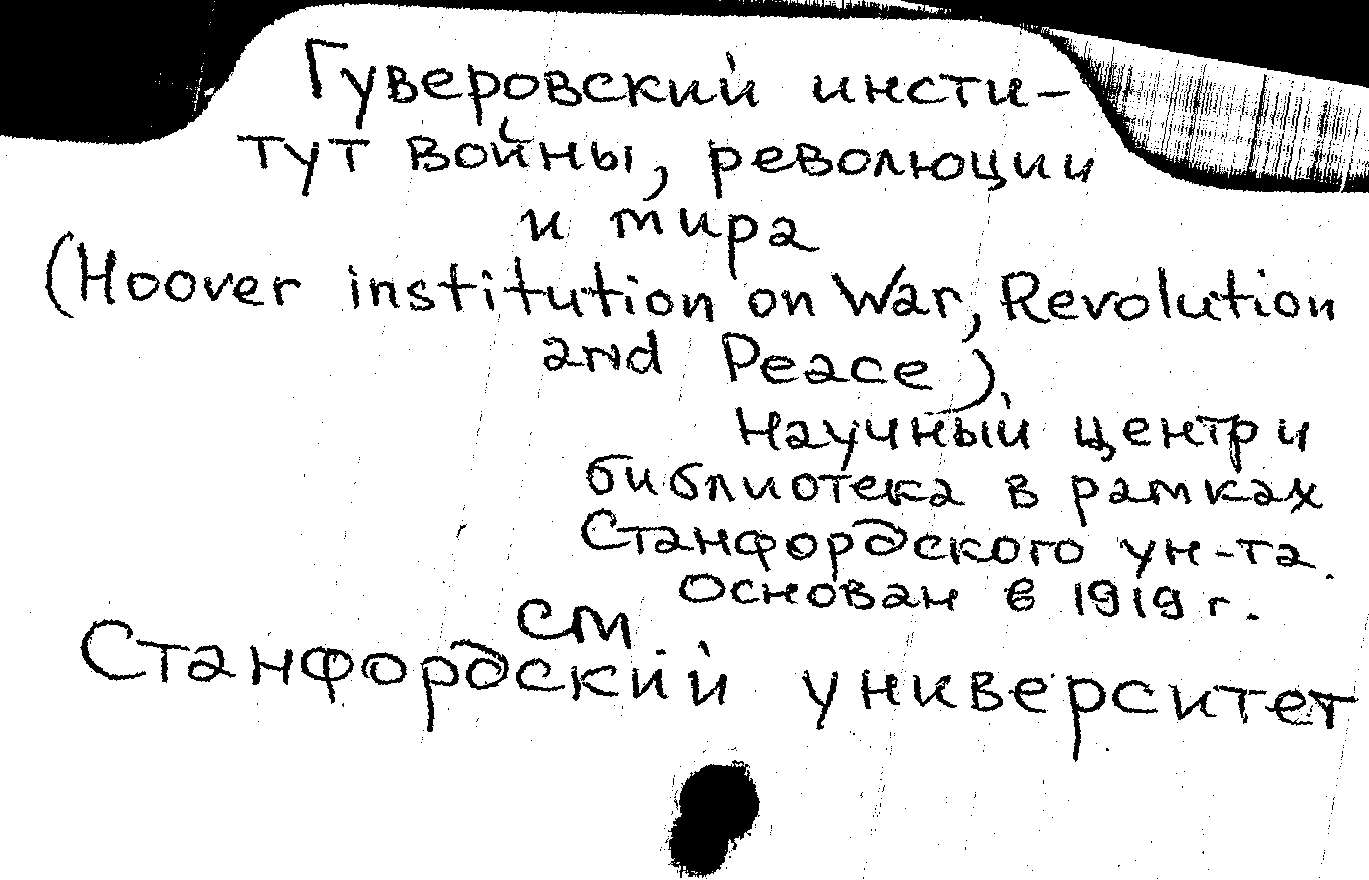 Гуверовский инсти-
тут войны, революции
и мира
(Hoover institution on War, Revolution
and Peace)
Научный центр и
библиотека в рамках
Станфордского ун-та.
Основан в 1919 г.
см
Станфордский университет